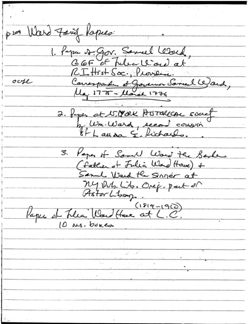 Ward Family Papers
1. Papers of Gov. Samuel Ward,
GGF of Julia Ward at
R.I. Hist Soc, Providence
Correspondence of Governor Samuel Ward,
May 1775 - March 1776
2. Papers at N.Y. HISTORICAL society
by Wm. Ward, second cousin
of Laura E. Richards.
3. Papers of Samuel Ward the Banker
(father of Julia Ward Howe) &
Samuel Ward the sinner at
NY Pub. Lib. Orig. part of
Astor Library.
(1819-1910)
Papers of Julia Ward Howe at L.C.
10 ms. boxes